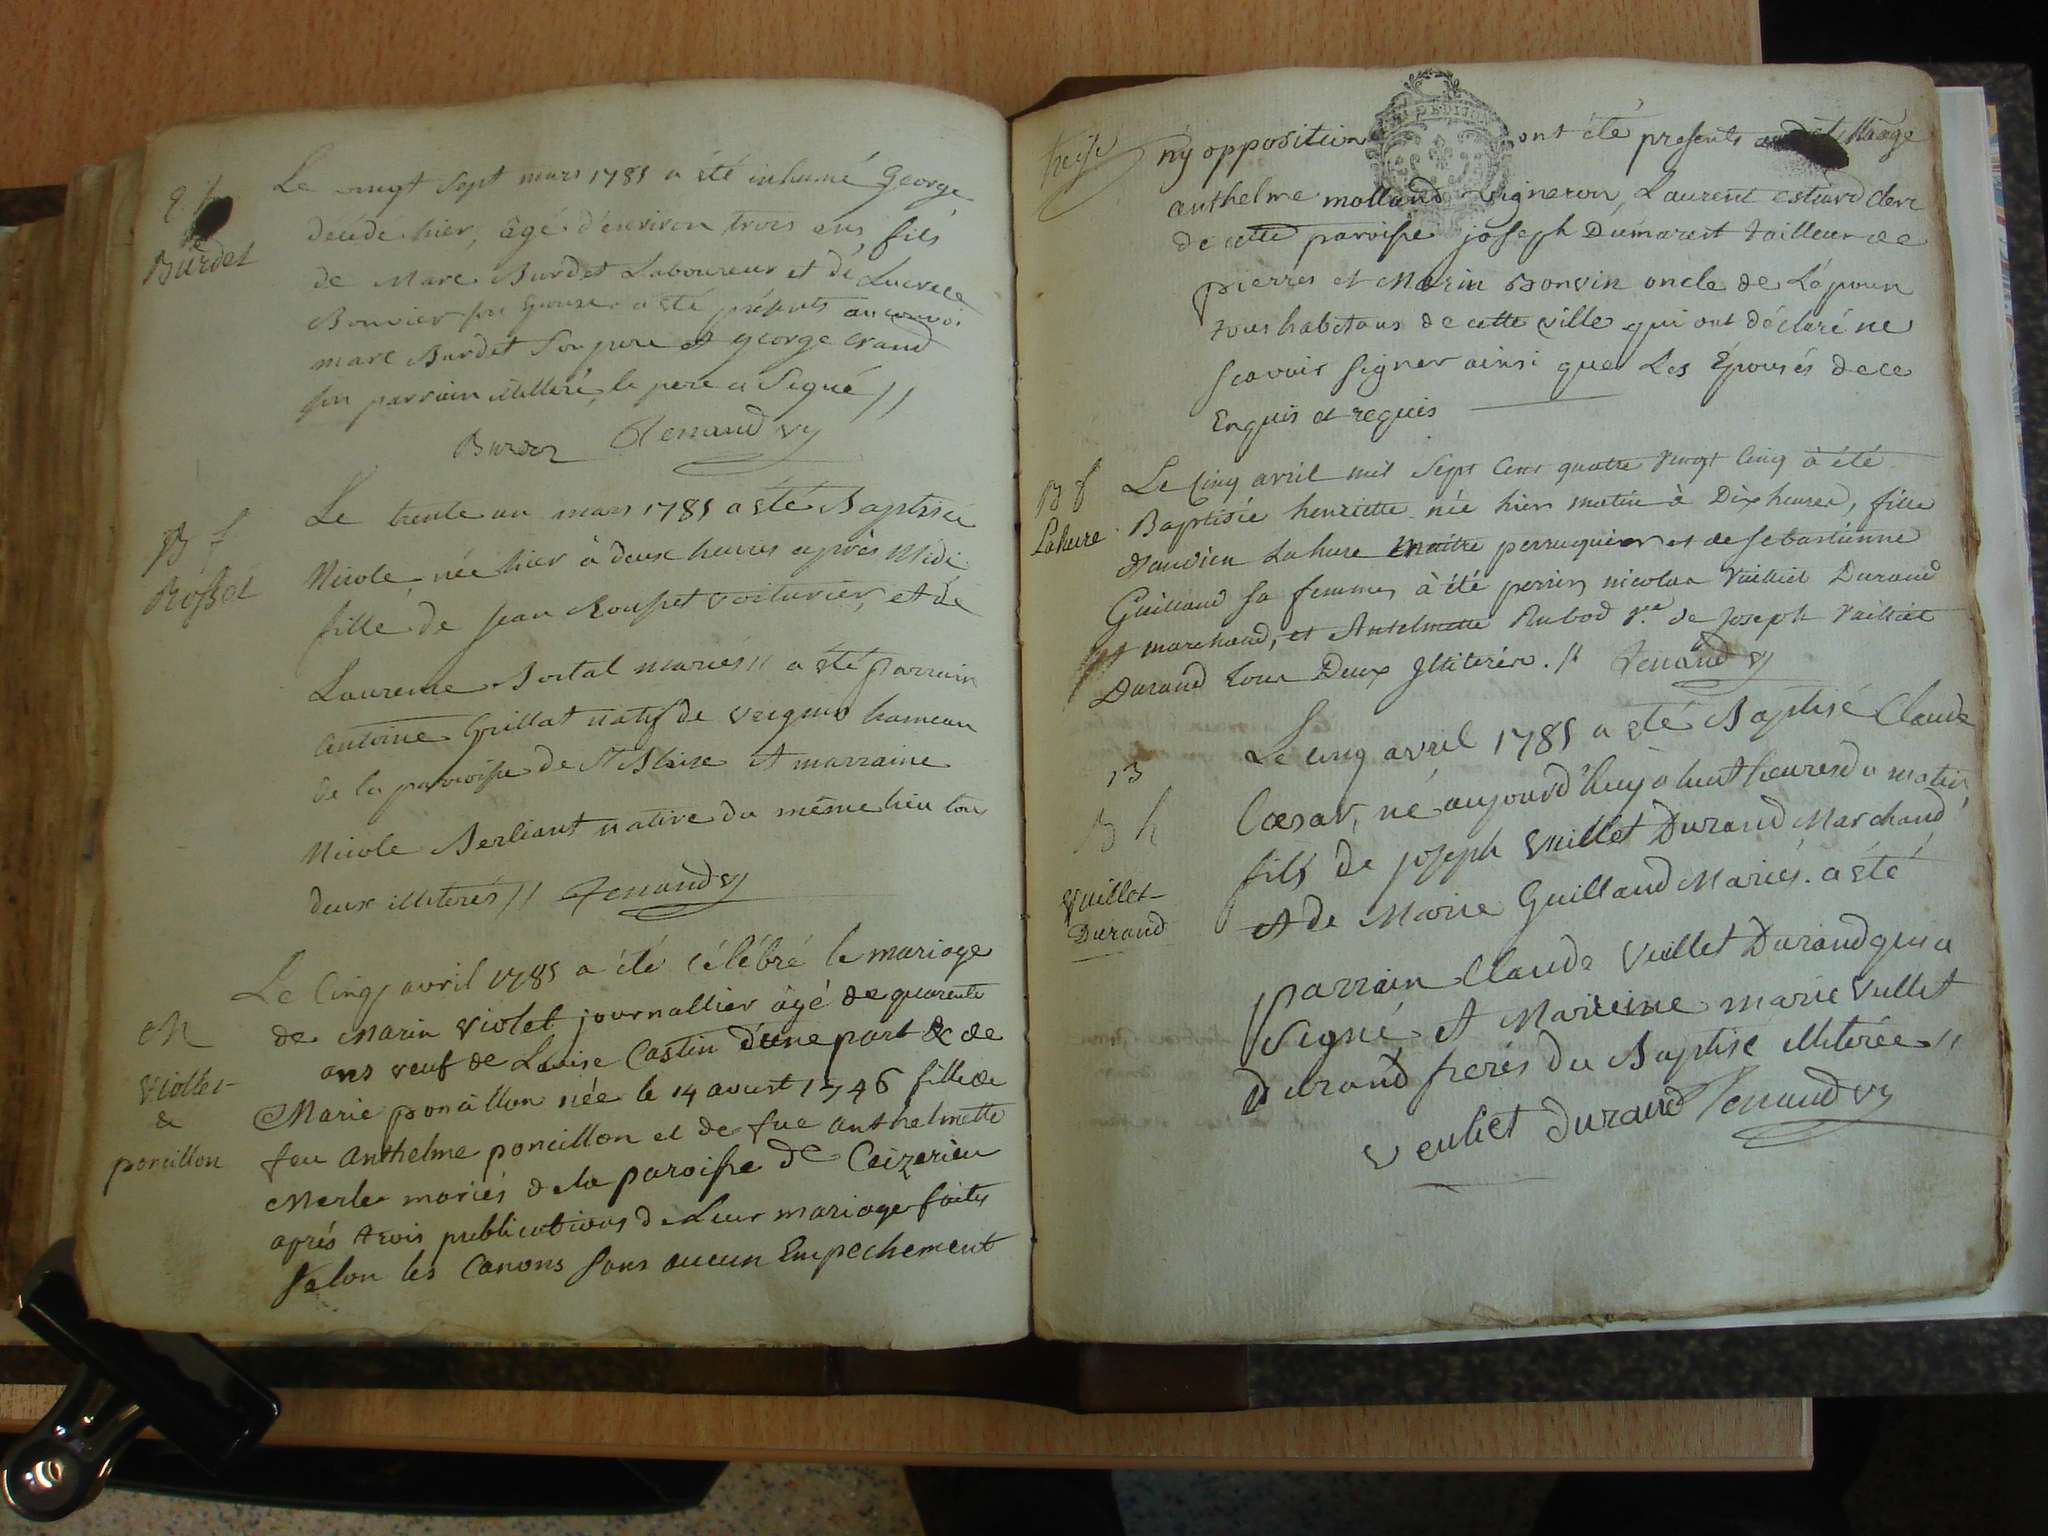 Burdet
Le vingt sept mars 1785 a été inhumé George
décédé hier, âgé d'environ trois ans, fils
de Marc Burdet Laboureur et de Lucrece
Bouvier son Epouse a été présents au convoi
marc Burdet son pere et george
son parrain illiteré, le pere a Signé //
Burdet Renaud vy
B f
Rosset
Le trente un mars 1785 a été Baptisée
Nicole née hier à deux heures après Midi
fille de Jean Rousset voiturier, et de
Laurence Bortal mariés // a été parrain
antoine Grillat natif de hameau
de la paroisse de St Blaise et marraine
Nicole Berliant native du même lieu tous
deux illiterés // Renaud vy
M
Viollet
&
poncillon
Le Cinq avril 1785 a été célébré le mariage
de Marin Violet journallier âgé de quarente
ans veuf de Louise Castin d'une part & de
Marie poncillon née le 14 avoust 1746 fille de
feu Anthelme poncillon et de fue anthelmette
Merle mariés de la paroisse de Ceizerieu
aprés trois publications de Leur mariage faites
selon les Canons sans aucun Empechement
treize
ny opposition ont été presents
anthelme mollard vigneron, Laurent clerc
de cette paroisse joseph Dumarest tailleur de
pierres et Marin Bonvin oncle de L'époux
tous habitans de cette ville qui ont déclaré ne
scavoir signer ainsi que Les Épousés de ce
Enquis et requis
B f
Lahure
Le Cinq avril mil Sept Cent quatre vingt Cinq à été
Baptisée henriette née hier matin à Dix heures, fille
Lahure maitre perruquier et de sebastienne
Guilland sa femme, à été perrin nicolas Vuilliet Durand
marchand, et Antelmette Rubod ve. de Joseph Vuilliet
Durand tous Deux Illiterés. // Renaud vy
13
B h
Vuillet
Durand
Le cinq avril 1785 a été Baptisé Claude
Cœsar, né aujourd'huy a huit heures du matin,
fils de joseph Vuillet Durand Marchand
et de Marie Guilland Mariés. a été
parrain Claude Vuillet Durand qui a
Signé et Mareine marie Vullet
Durand frerés du Baptisé illiterée //
Veuliet Durand Renaud vy